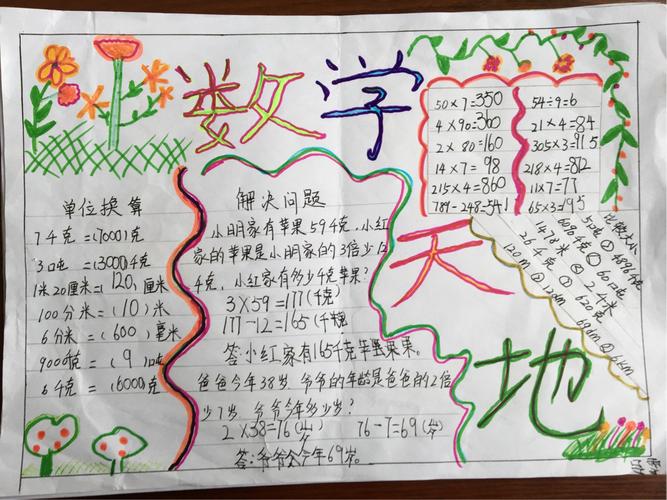 数学
天
地
50×7=350
4×90=360
2×80=160
14×7=98
215×4=860
789-248=541
54÷9=6
21×4=84
305×3=915
218×4=872
11×7=77
65×3=195
单位换算
7千克=(7000)克
3口吨=(3000)千克
1米20厘米=(120)厘米
100分米=(10)米
6分米=(600)毫米
9000千克=(9)口吨
6千克=(6000)克
解决问题
小明家有苹果59千克,小红
家的苹果是小明家的3倍少12
千克,小红家有多少千克苹果?
3×59=177(千克)
177-12=165(千克)
答:小红家有165千克苹果。
爸爸今年38岁 爷爷的年龄是爸爸的2倍
少7岁 爷爷今年多少岁?
2×38=76(岁) 76-7=69(岁)
答:爷爷今年69岁。
比较大小